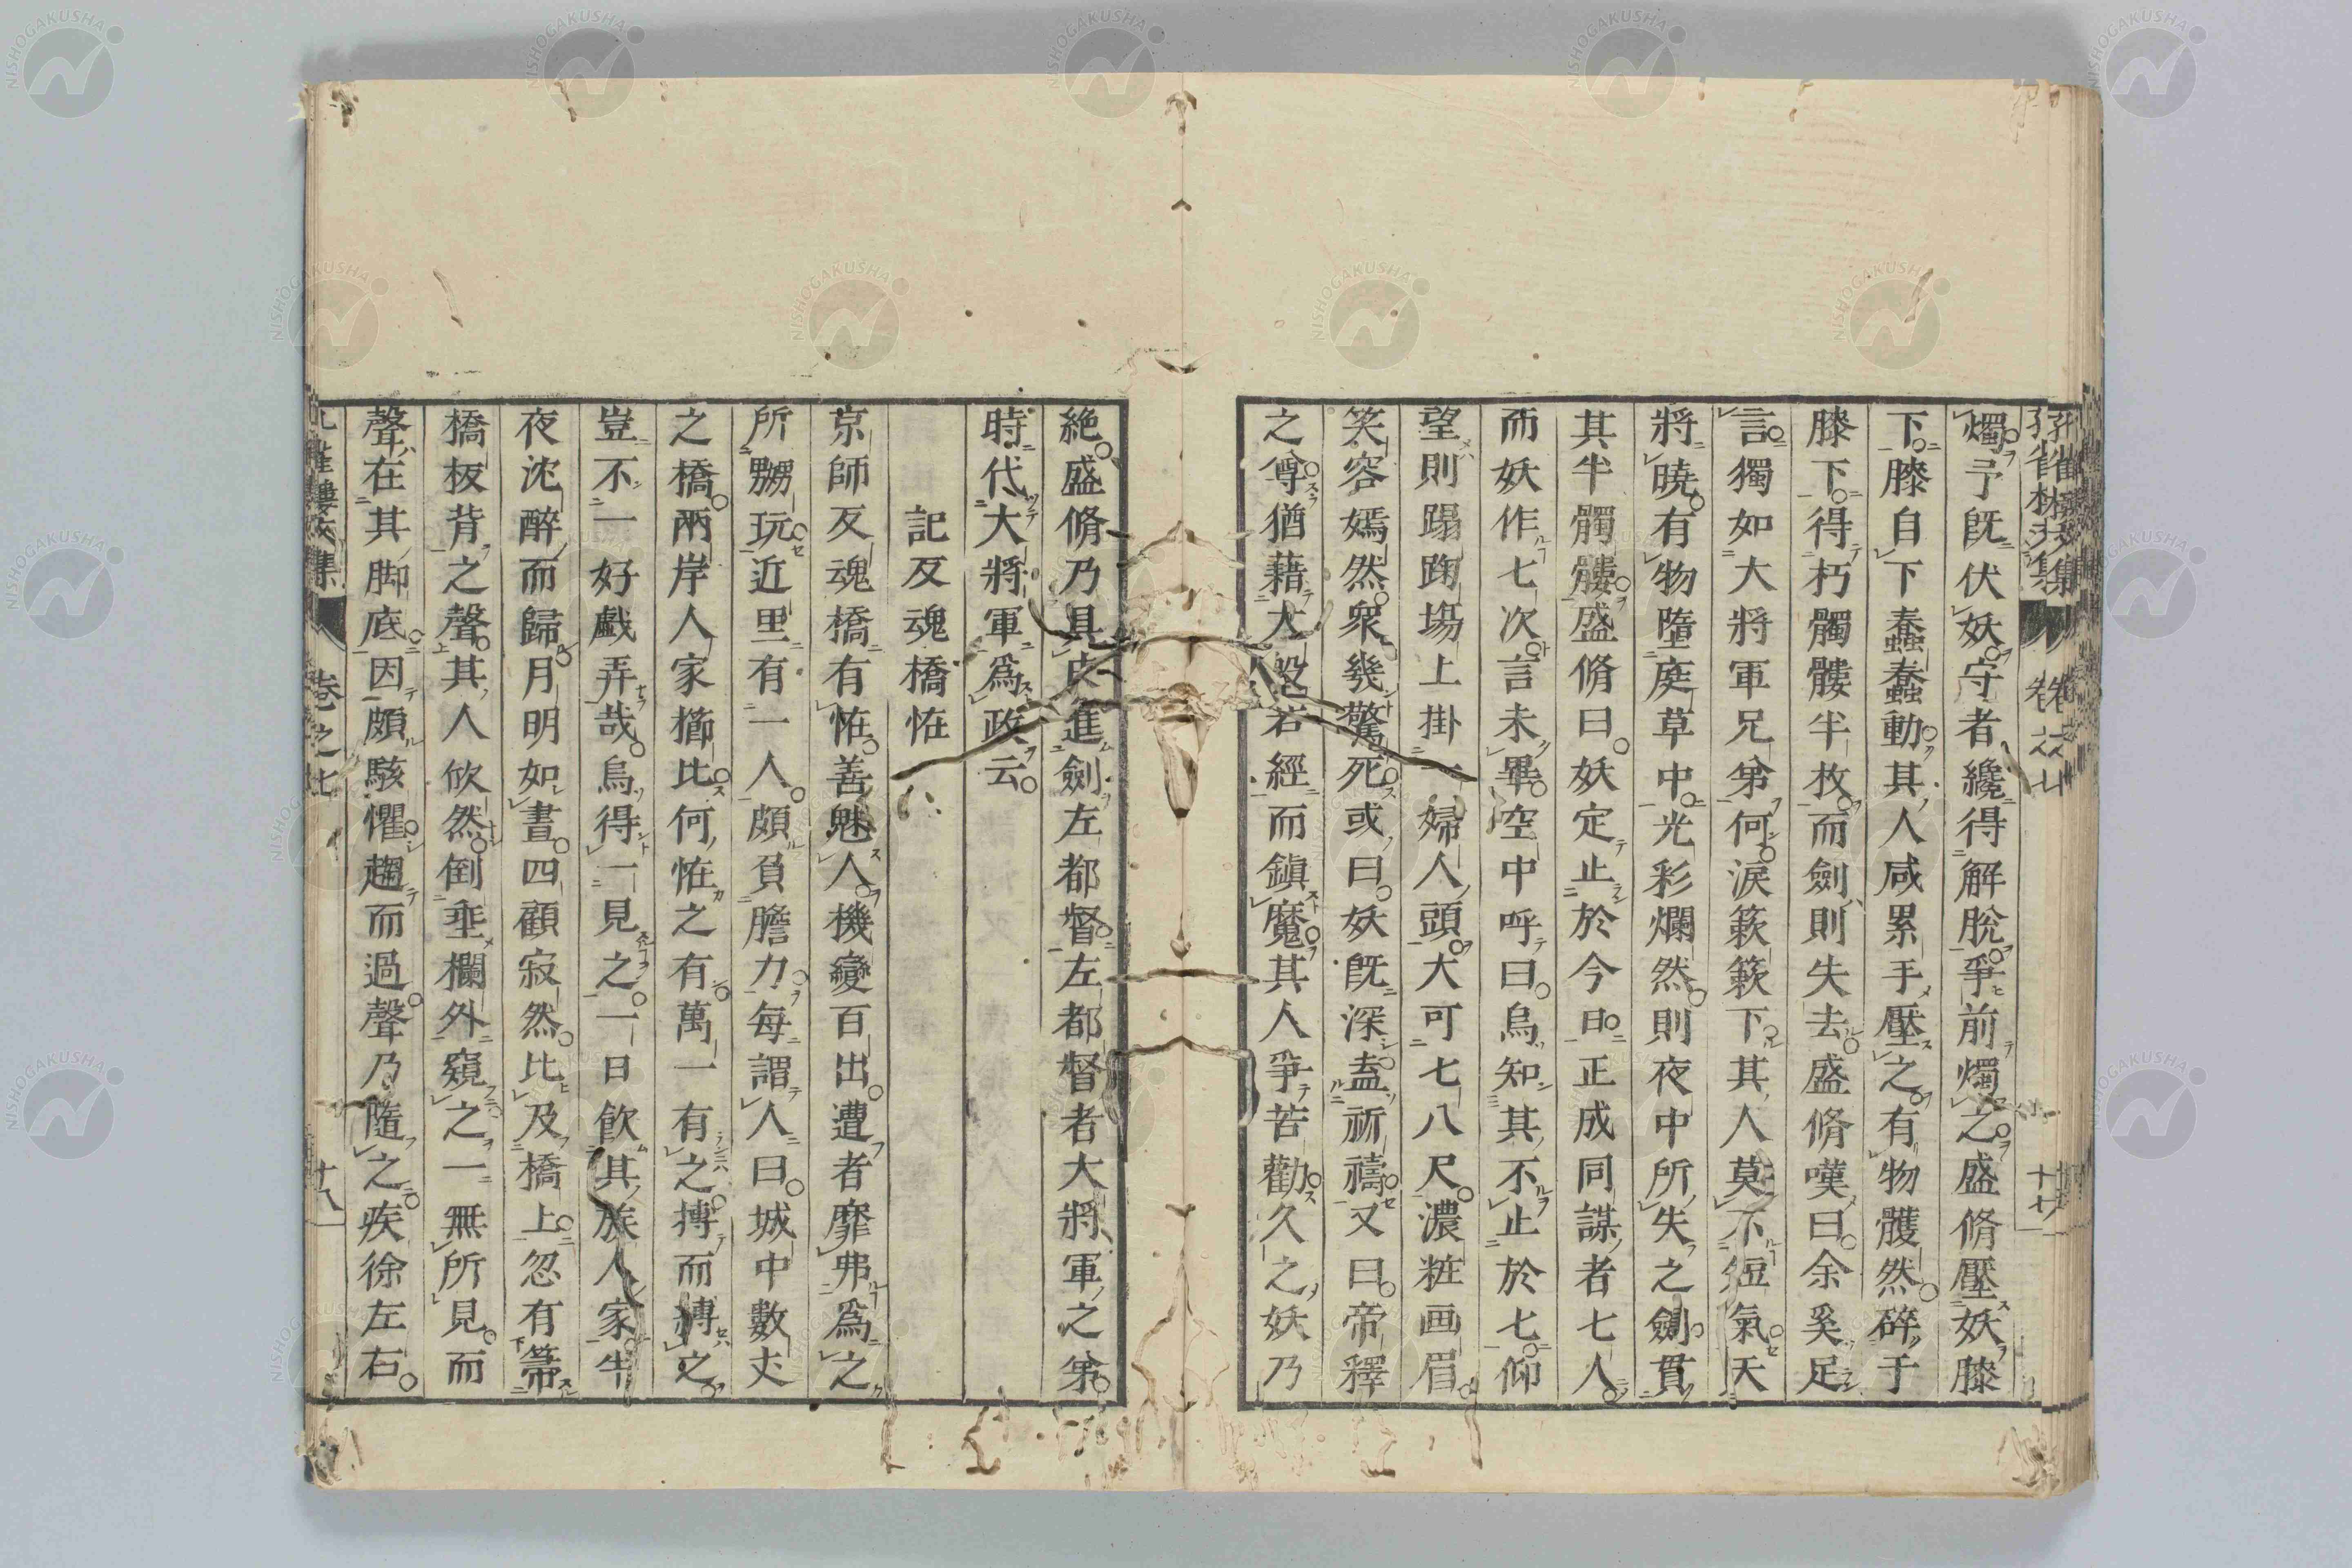 燭予既伏妖守者纔得解脫爭前燭之盛脩壓妖膝
下膝自下蠢蠢動其人咸累手壓之有物騞然碎于
膝下得朽髑髏半枚而劍則失去盛脩嘆曰余奚足
言獨如大將軍兄弟何淚簌簌下其人莫不短氣天
將曉有物墮庭草中光彩爛然則夜中所失之劍貫
其半髑髏盛脩曰妖定止於今日正成同謀者七人
而妖作七次言未畢空中呼曰烏知其不止於七仰
望則蹋踘場上掛一婦人頭大可七八尺濃粧画眉
笑容嫣然衆幾驚死或曰妖既深盍祈禱又曰帝釋
之尊猶藉大般若經而鎮魔其人爭苦勸久之妖乃
絶盛脩乃具
進劍左都督左都督者大將軍之弟
時代大將軍爲政云
記反魂橋恠
京師反魂橋有恠善魅人機變百出遭者靡弗爲之
所嬲玩近里有一人頗負膽力每謂人曰城中數丈
之橋兩岸人家櫛比何恠之有萬一有之搏而縛之
豈不一好戲弄哉烏得一見之一日飮其族人家半
夜沈醉而歸月明如晝四顧寂然比及橋上忽有箒
橋板背之聲其人欣然倒垂欄外窺之一無所見而
聲在其脚底因頗駭懼趨而過聲乃隨之疾徐左右
卷之七
十八
十七
NISHOGAKUSHA